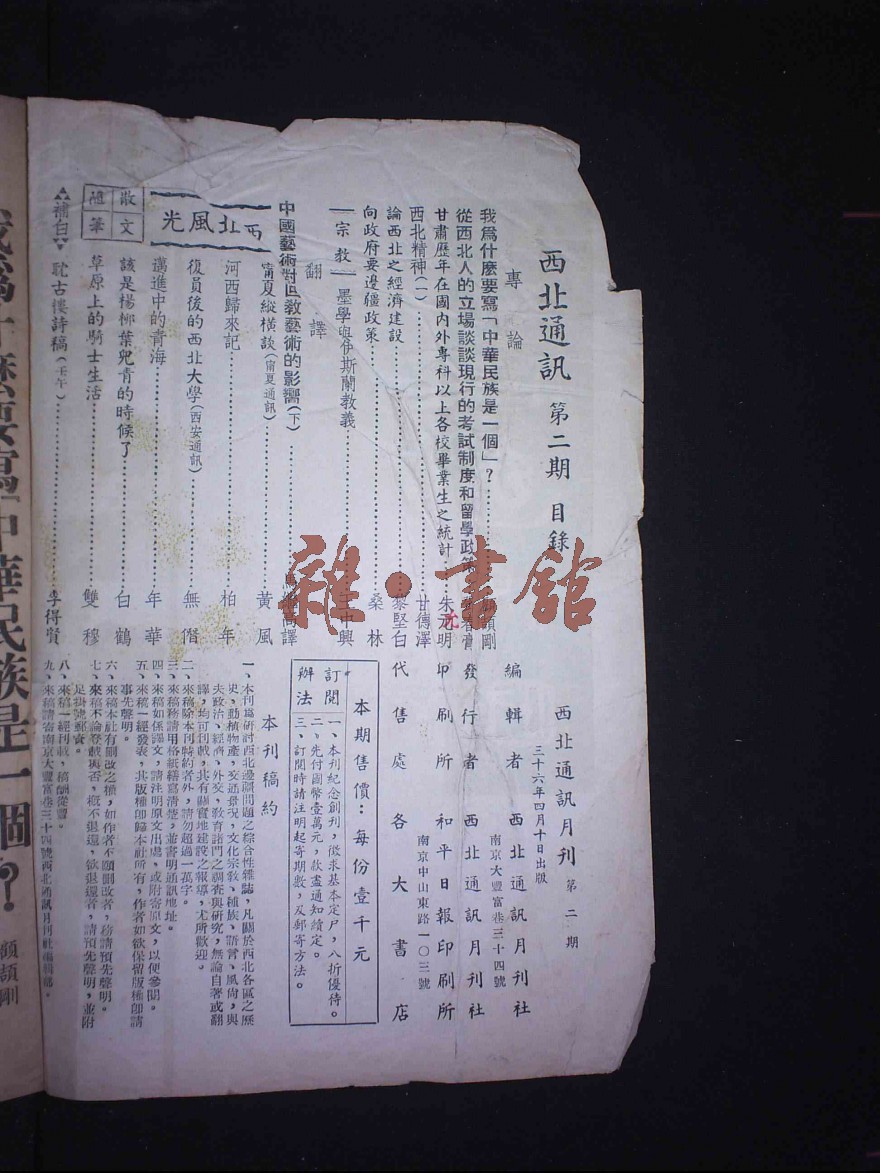 西北通訊 第二期 目錄
專論
我爲什麼要寫「中華民族是一個」？ 顧頡剛
從西北人的立場談談現行的考試制度和留學政策
甘肅歷年在國內外專科以上各校畢業生之統計 朱元明
西北精神(一) 甘德澤
論西北之經濟建設 黎堅白
向政府要邊疆政策 桑林
宗教
墨學與伊斯蘭教義 中興
翻譯
中國藝術對回教藝術的影響(下) 譯
西北風光
甯夏縱橫談(甯夏通訊) 黃風
河西歸來記 柏年
復員後的西北大學(西安通訊) 無僭
邁進中的青海 年華
散文
隨筆
該是楊柳葉兒青的時候了 白鶴
草原上的騎士生活 雙穆
補白
耽古樓詩稿(壬午) 李得賢
雜·書館
西北通訊月刊 第二期
三十六年四月十日出版
編輯者 西北通訊月刊社
南京大豐富巷三十四號
發行者 西北通訊月刊社
印刷所 和平日報印刷所
南京中山東路一〇三號
代售處 各大書店
本期售價：每份壹千元
訂閱辦法
一、本刊紀念創刊，徵求基本定戶，八折優待。
二、先付國幣壹萬元，款盡通知續定。
三、訂閱時請注明起寄期數，及郵寄方法。
本刊稿約
一、本刊爲研討西北邊疆問題之綜合性雜誌，凡關於西北各區之歷
史，動植物產，交通景況，文化宗敎、種族、語言、風尙，與
夫政治、經濟、外交、敎育諸門之調查與研究，無論自著或翻
譯，均可刊載，其有關實地建設之報導，尤所歡迎。
二、來稿除本刊特約者外，請勿超過一萬字。
三、來稿務請用格紙繕寫清楚，並書明通訊地址。
四、來稿如係譯文，請注明原文出處，或附寄原文，以便參閱。
五、來稿一經發表，其版權卽歸本社所有，作者如欲保留版權卽請
事先聲明。
六、來稿本社有刪改之權，如作者不願刪改者，務請預先聲明。
七、來稿不論登載與否，概不退還，欲退還者，請預先聲明，並附
足掛號郵資。
八、來稿一經刊載，稿酬從豐。
九、來稿請寄南京大豐富巷三十四號西北通訊月刊社編輯部。
我爲什麼要寫「中華民族是一個」？
顧頡剛